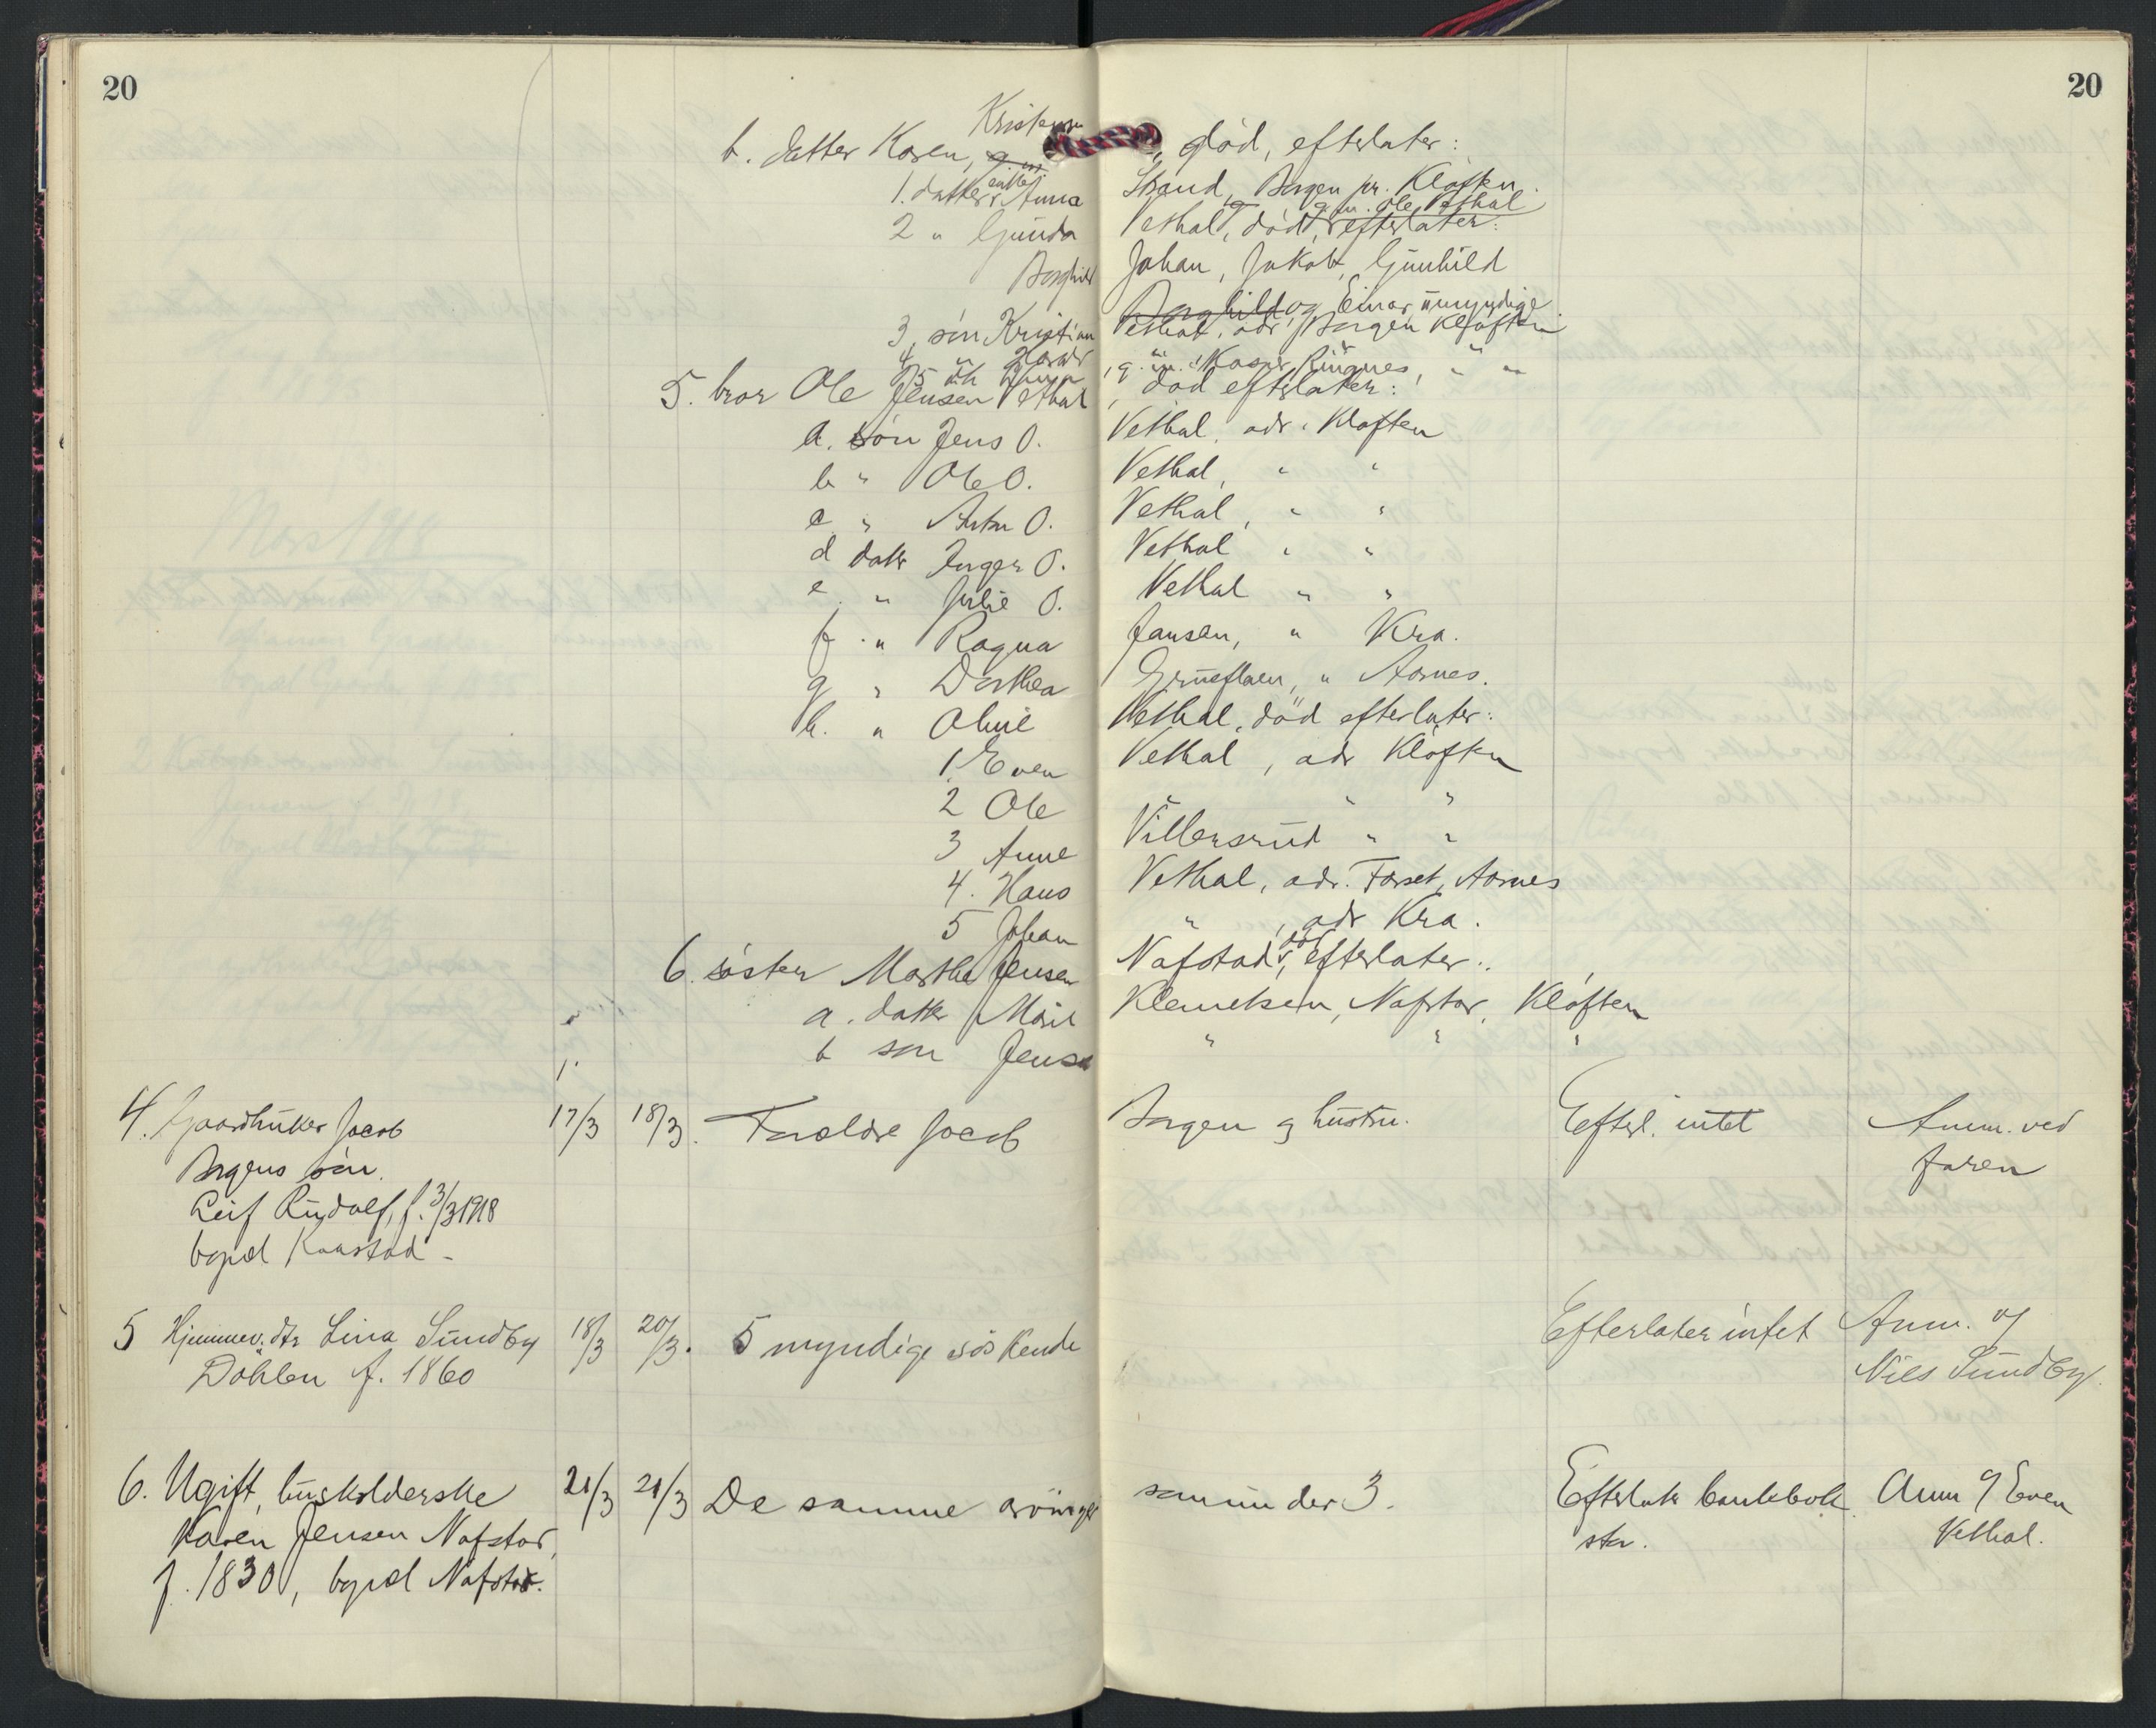 20 20
Kristensen
b. datter Karen, død, efterlater:
1. datter Anna Strand, Borgen pr. Kløften.
g.m. Ole Vethal
2 " Gunda Vethal, død, efterlater:
Borghild Johan, Jakob, Gunhild
Borghild og Einar umyndige
3. søn Kristian Vethal, adr. Borgen Kløften
4 " g.m. Kasper Ringnes, " "
5. bror Ole Jensen Vethal, død efterlater:
a. søn Jens O. Vethal, adr. Kløften
b " Ole O. Vethal, " "
c " Anton O. Vethal, " "
d datr Inger O. Vethal " "
e. " Julie O. Vethal " "
f. " Ragna Jansen, " Kra.
g " Dorthea Grueflaen, " Aarnes.
h. " Oline Vethal, død efterlater:
1. Even Vethal, adr Kløften
2 Ole " " "
3 Anne Villersrud " "
4. Hans Vethal, adr. Forset, Aarnes
5 Johan " , adr Kra.
6. søster Marthe Jensen Nafstad, død efterlater:
a. datter Marie Klemetsen, Nafstad, Kløften
b søn Jens " " "
4. Gaardbruker Jacob 17/3 18/3. Forældre Jacob Borgen og hustru. Efterl. intet Anm. ved
Borgens søn. faren
Leif Rudolf, f. 3/3 1918
bopæl Kaastad -
5 Hjemmev. dtr Lina Sundby 18/3 20/3. 5 myndige søskende Efterlater intet Anm. af
Dahlen f. 1860 Nils Sundby.
6. Ugift, husholderske 21/3 21/3 De samme arvinger som under 3. Efterlater bankebok Anm af Even
Karen Jensen Nafstad, Vethal.
f. 1830, bopæl Nafstad.